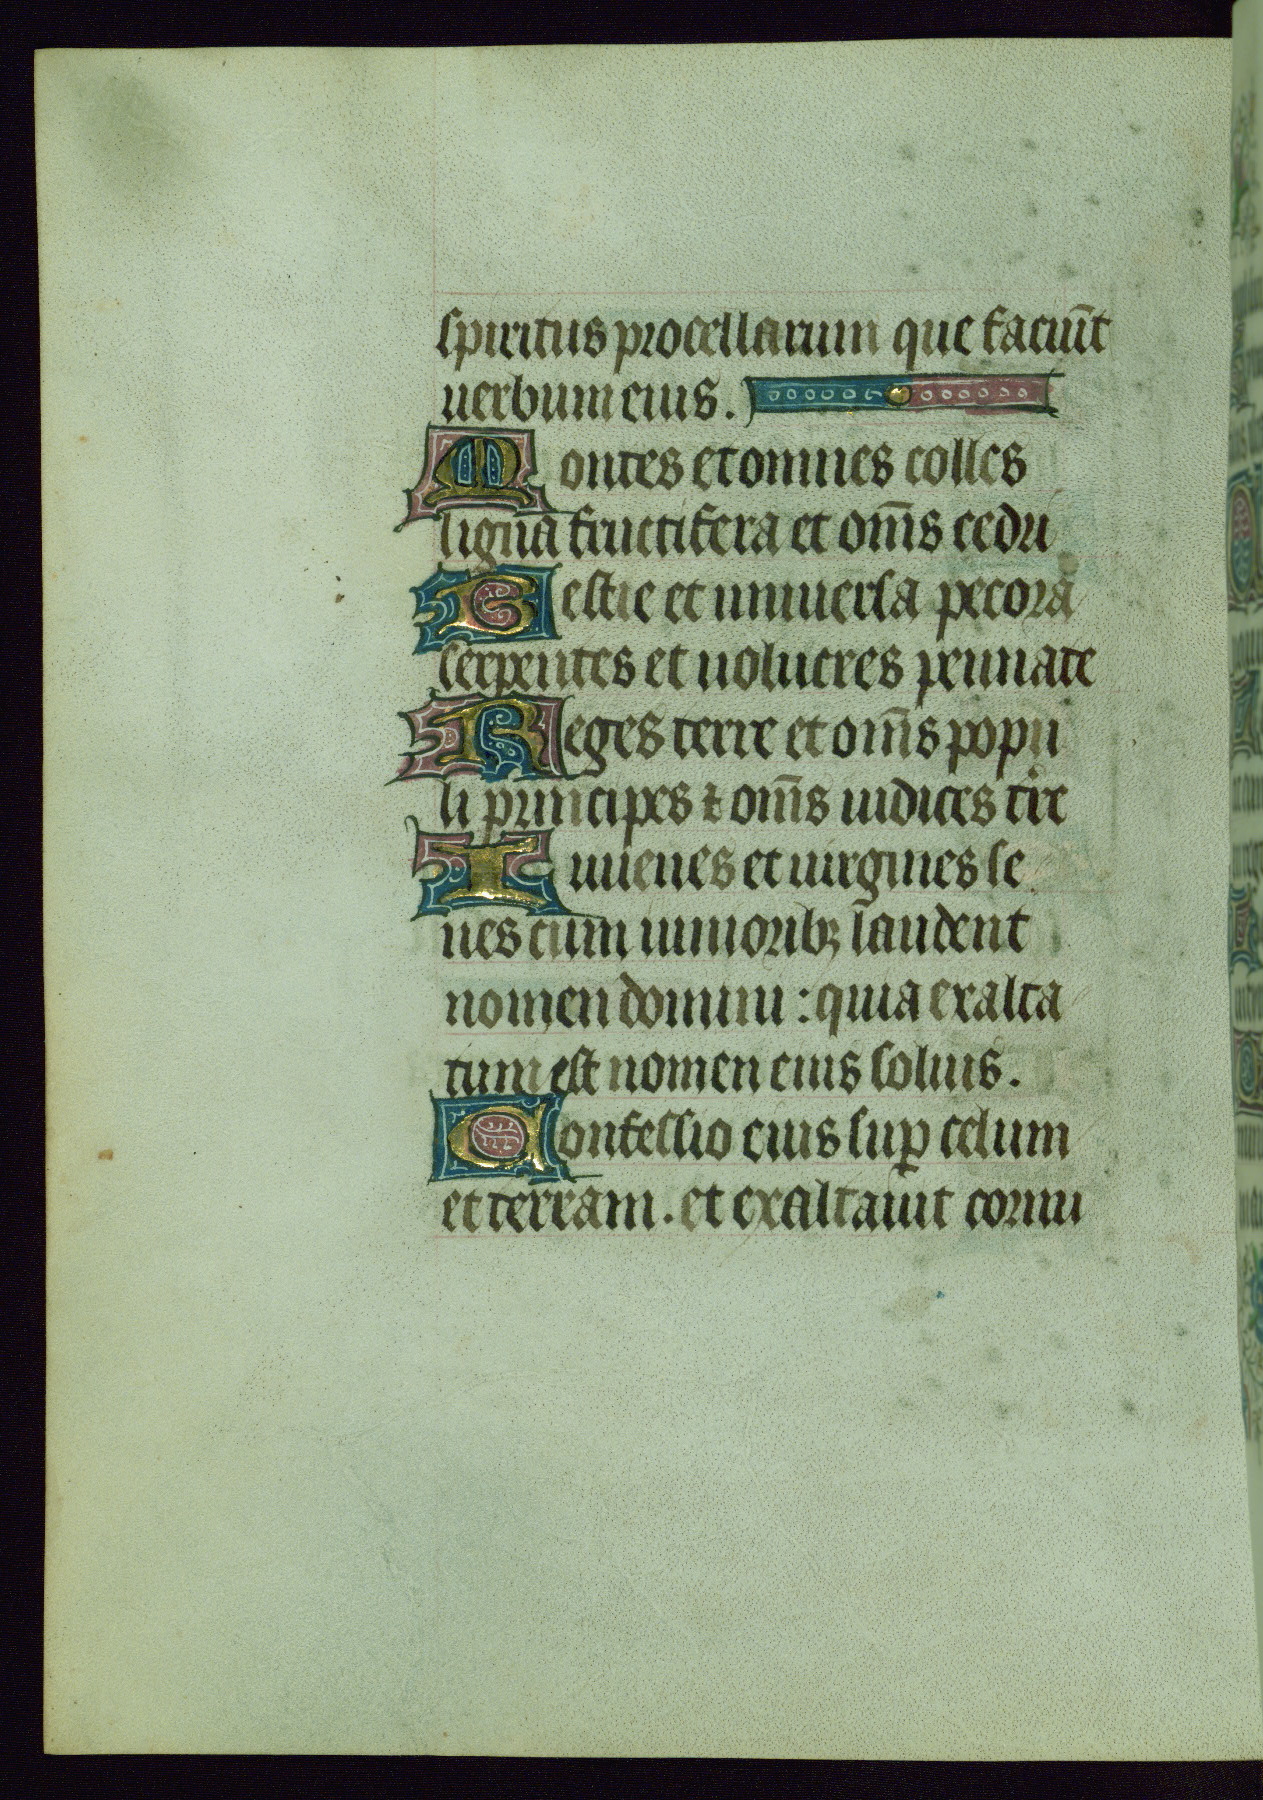 spiritus procellarum que faciūt
uerbum eius.
Montes et omnes colles
ligna fructifera et om̄s cedri
Bestie et uniuersa pecora
serpentes et uolucres pennate
Reges terre et om̄s popu
li principes ⁊ om̄s iudices tr̄e
Iuuenes et uirgines se
nes cum iunioribꝫ laudent
nomen domini : quia exalta
tum est nomen eius solius.
Confessio eius suꝑ celum
et terram. et exaltauit cornu